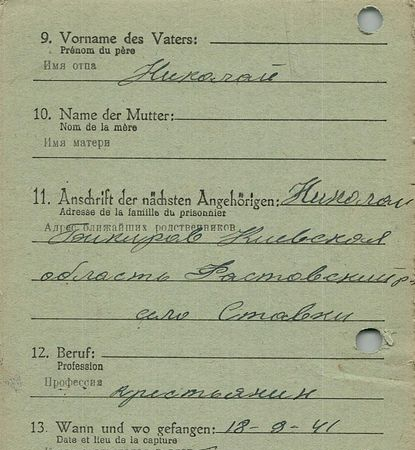 9. Vorname des Vaters:
Prénom du père
Имя отца
Николай
10. Name der Mutter:
Nom de la mère
Имя матери
11. Anschrift der nächsten Angehörigen: Николай
Adresse de la famille du prisonnier
Адрес ближайших родственников
Киевская
область Фастовский р-
село Ставки
12. Beruf:
Profession
Профессия
крестьянин
13. Wann und wo gefangen: 18-9-41
Date et lieu de la capture